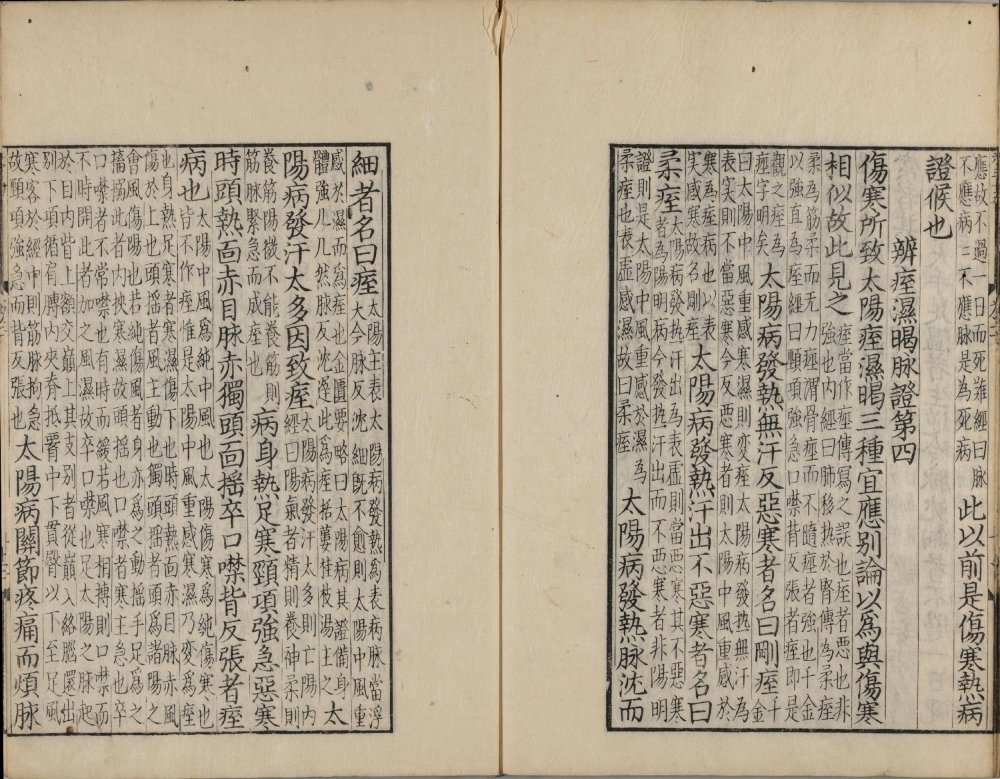 應故不過一日而死難經曰脉
不應病〻不應脉是為死病
此以前是傷寒熱病
證候也
辨痓濕暍脉證第四
傷寒所致太陽痓濕暍三種宜應別論以為與傷寒
相似故此見之
痓當作痙傳寫之誤也痓者惡也非
強也內經曰肺移热於腎傳為柔痓
柔為筋柔而无力痓謂骨痓而不隨痙者強也千金
以強直為痓經曰頸項強急口噤背反張者痓即是
觀之痓為
痙字明矣
太陽病發熱無汗反惡寒者名曰剛痓
千
金
曰太陽中風重感寒濕則変痓太陽病發热無汗為
表実則不當惡寒今反惡寒者則太陽中風重感於
寒為痓也以表
実感寒故名剛痓
太陽病發熱汗出不惡寒者名曰
柔痓
太陽病發热汗出為表虛則當惡寒其不惡寒
者為陽明病今發热汗出而不惡寒者非陽明
證則是太陽中風重感於濕為
柔痓也表虛感濕故曰柔痓
太陽病發熱脉沈而
細者名曰痓
太陽主表太陽病發熱為表病脉當浮
大今脉反沈細既不愈則太陽中風重
感於濕而為痓也金匱要略曰太陽病其證備身
體強几几然脉反沈遲此為痓栝蔞桂枝湯主之
太
陽病發汗太多因致痓
太陽病發汗太多則亡陽內
經曰陽氣者精則養神柔則
養筋陽微不能養筋則
筋脉緊急而成痓也
病身熱足寒頸項強急惡寒
時頭熱面赤目脉赤獨頭面搖卒口噤背反張者痓
病也
太陽中風為純中風也太陽傷寒為純傷寒也
皆不作痓惟是太陽中風重感寒濕乃變為痓
也身熱足寒者寒濕傷下也時頭熱面赤目脉赤風
傷於上也頭搖者風主動也獨頭搖者頭為諸陽之
會風傷陽也若純傷風者身亦為之動搖手足為之
搐搦此者內挾寒濕故頭搖也口噤者寒主急也卒
口噤者不常噤也有時而緩若風寒相搏則口噤而
不時開此者加之風濕故卒口噤也足太陽之脉起
於目內眥上額交巔上其支別者從巔入絡腦還出
別下項循肩膊內夾脊抵腰中下貫臀以下至足風
寒客於經中則筋脉拘急
故頸項強急而背反張也
太陽病關節疼痛而煩脉